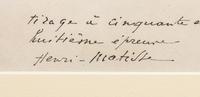 tirage à cinquante e
huitième épreuve
Henri-Matisse